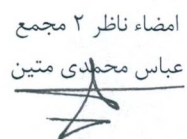 امضاء ناظر ۲ مجمع
عباس محمدی متین